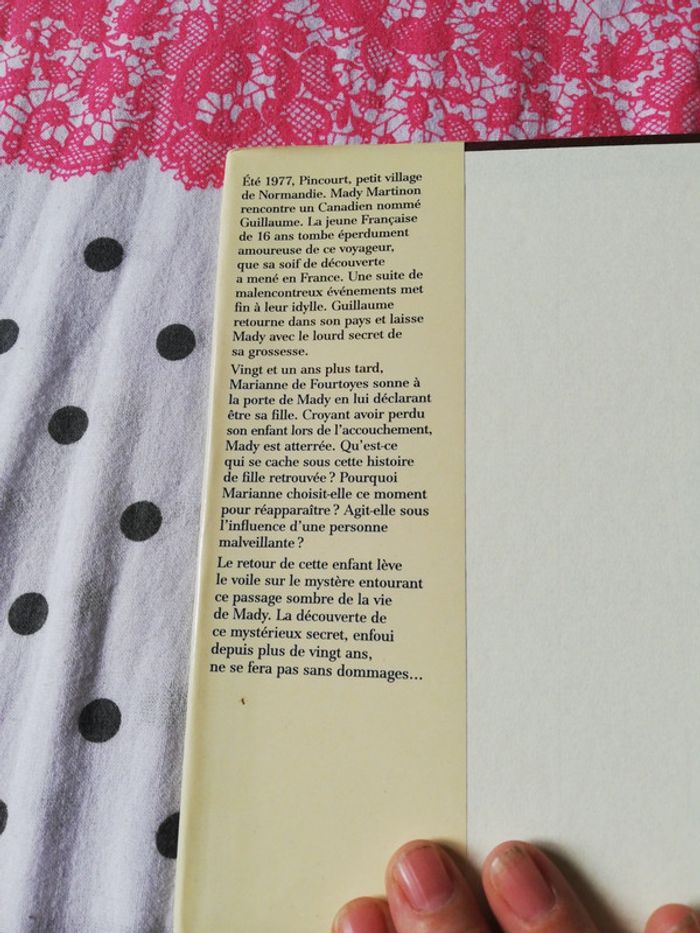 Été 1977, Pincourt, petit village
de Normandie. Mady Martinon
rencontre un Canadien nommé
Guillaume. La jeune Française
de 16 ans tombe éperdument
amoureuse de ce voyageur,
que sa soif de découverte
a mené en France. Une suite de
malencontreux événements met
fin à leur idylle. Guillaume
retourne dans son pays et laisse
Mady avec le lourd secret de
sa grossesse.
Vingt et un ans plus tard,
Marianne de Fourtoyes sonne à
la porte de Mady en lui déclarant
être sa fille. Croyant avoir perdu
son enfant lors de l'accouchement,
Mady est atterrée. Qu'est-ce
qui se cache sous cette histoire
de fille retrouvée ? Pourquoi
Marianne choisit-elle ce moment
pour réapparaître ? Agit-elle sous
l'influence d'une personne
malveillante ?
Le retour de cette enfant lève
le voile sur le mystère entourant
ce passage sombre de la vie
de Mady. La découverte de
ce mystérieux secret, enfoui
depuis plus de vingt ans,
ne se fera pas sans dommages...